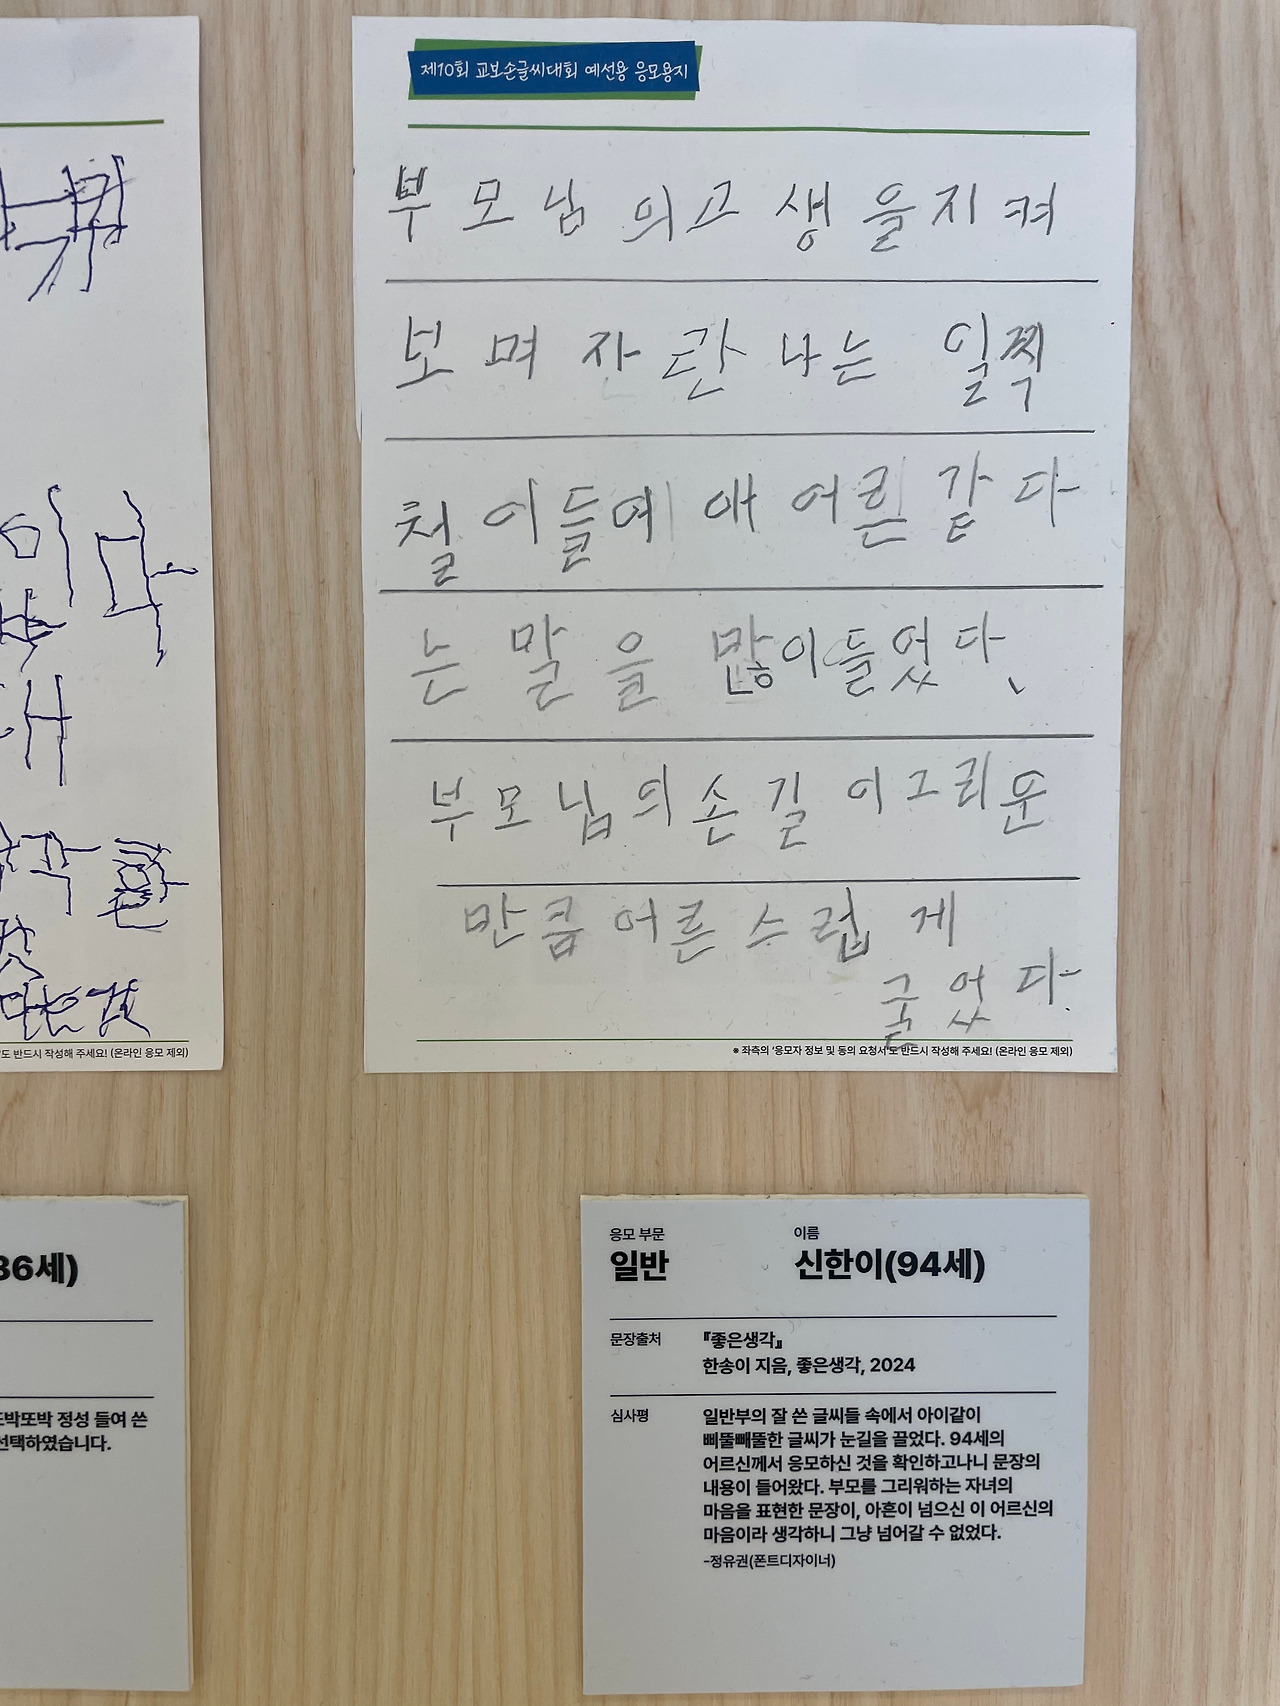 제10회 교보손글씨대회 예선용 응모용지
부모님의고생을지켜
보며자란나는 일찍
철이들여 애어른같다
는말을많이들었다.
부모님의손길이그리운
만큼어른스럽게
굴었다.
※ 좌측의 '응모자 정보 및 동의 요청서'도 반드시 작성해 주세요! (온라인 응모 제외)
도 반드시 작성해 주세요! (온라인 응모 제외)
36세)
또박또박 정성 들여 쓴
선택하였습니다.
응모 부문 이름
일반 신한이(94세)
문장출처 『좋은생각』
한송이 지음, 좋은생각, 2024
심사평 일반부의 잘 쓴 글씨들 속에서 아이같이
삐뚤빼뚤한 글씨가 눈길을 끌었다. 94세의
어르신께서 응모하신 것을 확인하고나니 문장의
내용이 들어왔다. 부모를 그리워하는 자녀의
마음을 표현한 문장이, 아흔이 넘으신 이 어르신의
마음이라 생각하니 그냥 넘어갈 수 없었다.
-정유권(폰트디자이너)